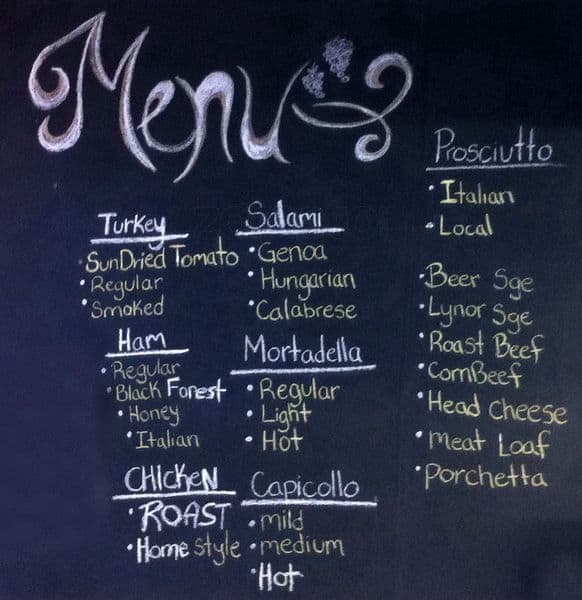 Menu
Turkey
• SunDried Tomato
• Regular
• Smoked
Ham
• Regular
• Black Forest
• Honey
• Italian
CHIcKeN
• ROAST
• Home style
Salami
• Genoa
• Hungarian
• Calabrese
Mortadella
• Regular
• Light
• Hot
Capicollo
• mild
• medium
• Hot
Prosciutto
• Italian
• Local
• Beer Sge
• Lynor Sge
• Roast Beef
• CornBeef
• Head Cheese
• meat Loaf
• Porchetta